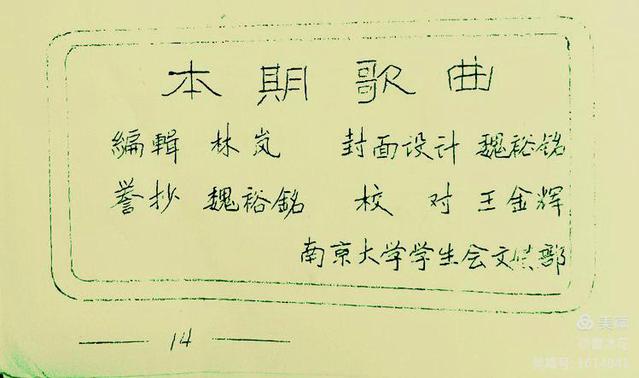 本期歌曲
編輯 林岚 封面设计 魏裕銘
誊抄 魏裕銘 校对 王金辉
南京大学学生会文娱部
14
美篇